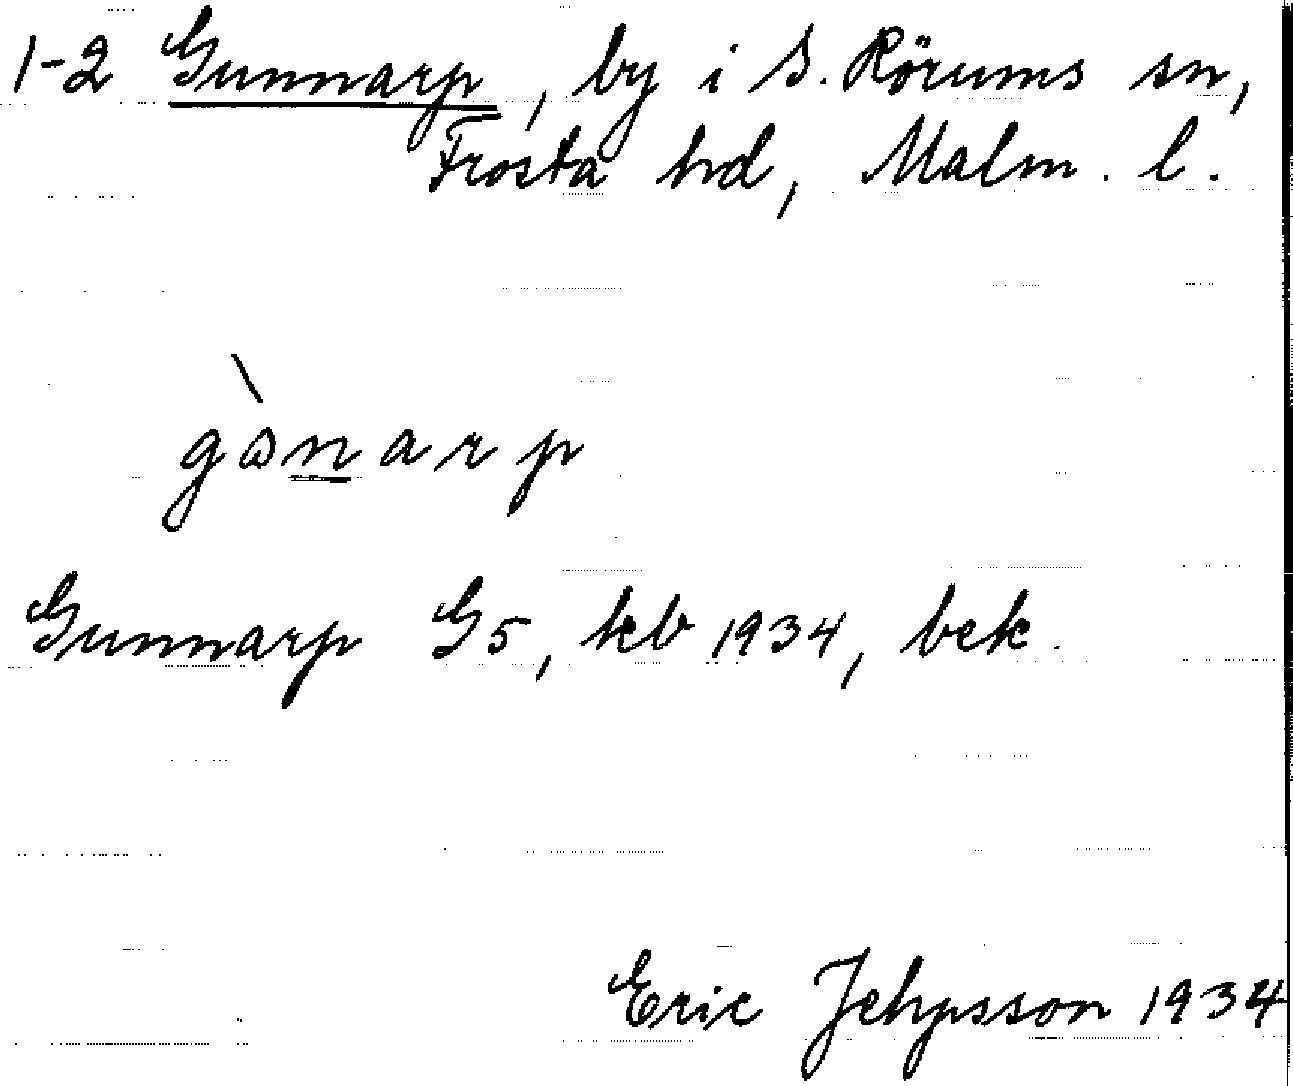 1-2 Gunnarp, by i S. Rörums sn,
Frosta hd, Malm. l.
gònarp
Gunnarp G5, kb 1934, bek.
Eric Jehpsson 1934